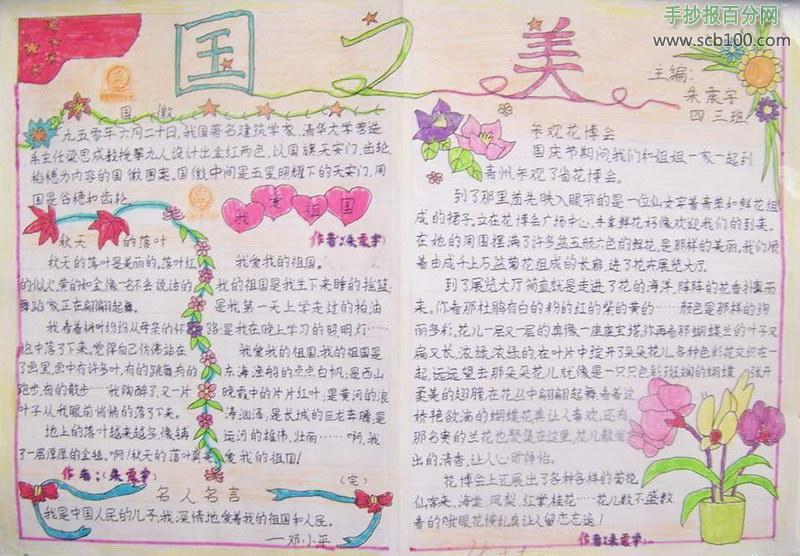 手抄报百分网
www.scb100.com
国之美
主编:
朱震宇
四三班
国徽
一九五零年六月二十日,我国著名建筑学家,清华大学营造
系主任梁思成教授等九人设计出金红两色,以国旗天安门,齿轮
稻穗为内容的国徽图案。国徽中间是五星照耀下的天安门,周
围是谷穗和齿轮。
秋天的落叶
秋天的落叶是美丽的。落叶红
的似火,黄的和金像一名不会说话的
舞蹈家正在翩翩起舞。
我看着树叶纷纷从母亲的怀
抱中落了下来,觉得自己仿佛站在
了画里,画中有许多叶,有的跳舞有的
跑步,有的散步……我陶醉了,又一片
叶子从我眼前悄悄的落了下来。
地上的落叶越来越多,像铺
了一层厚厚的金毯。啊!秋天的落叶真美
作者:(朱震宇)
我爱祖国
作者:朱震宇
我爱我的祖国。
我的祖国是我生下来睡的摇篮;
是我第一天上学走过的柏油
路;是我在晚上学习的照明灯……
我爱我的祖国,我的祖国是
东海渔船的点点白帆;是西山
晚霞中的片片红叶;是黄河的浪
涛汹涌;是长城的巨龙奔腾;是
运河的雄伟、壮丽……啊,我
爱我的祖国!
(完)
名人名言
我是中国人民的儿子,我深情地爱着我的祖国和人民。
——邓小平
参观花博会
国庆节期间,我们和姐姐一家一起到
青州,参观了省花博会。
到了那里首先映入眼帘的是一位仙女穿着青草和鲜花组
成的裙子,立在花博会广场中心,手拿鲜花好像欢迎我们的到来。
在她的周围摆满了许多盆五颜六色的鲜花,是那样的美丽。我们顺
着由成千上万盆菊花组成的长廊,进了花卉展览大厅。
到了展览大厅简直就是走进了花的海洋,阵阵的花香扑面而
来。你看那杜鹃有白的粉的红的紫的黄的……颜色是那样的绚
丽多彩。花儿一层又一层的真像一座座宝塔。你再看那蝴蝶兰的叶子又
扁又长,浓绿,浓绿的,在叶片中绽开了朵朵花儿,各种色彩花交织在一
起,远远望去那朵朵花儿就像是一只只色彩斑斓的蝴蝶,张开
柔美的翅膀,在花丛中翩翩起舞,看着这
娇艳欲滴的蝴蝶花真让人喜欢,还有
那名贵的兰花也聚集在这里,花儿散发
出的清香,让人心旷神怡。
花博会上还展出了各种各样的菊花
仙客来,海棠,凤梨,红掌,桂花……花儿数不盛数
看的我眼花缭乱真让人留恋忘返!
作者:朱震宇